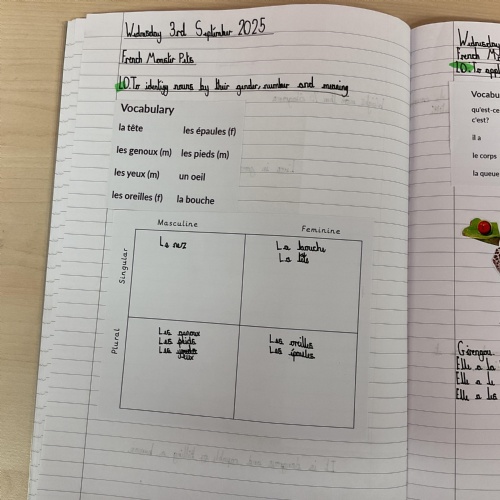 Wednesday 3rd September 2025
French Monster Pets
LO: To identify nouns by their gender, number and meaning
Vocabulary
la tête les épaules (f)
les genoux (m) les pieds (m)
les yeux (m) un oeil
les oreilles (f) la bouche
Masculine Feminine
Singular
Le nez
La bouche
La tête
Plural
Les genoux
Les pieds
Les yeux
Les oreilles
Les épaules
Wednesday
French M
LO: To appl
Vocabu
qu'est-ce
c'est?
il a
le corps
la queue
Elle a la
Elle a le
Elle a les